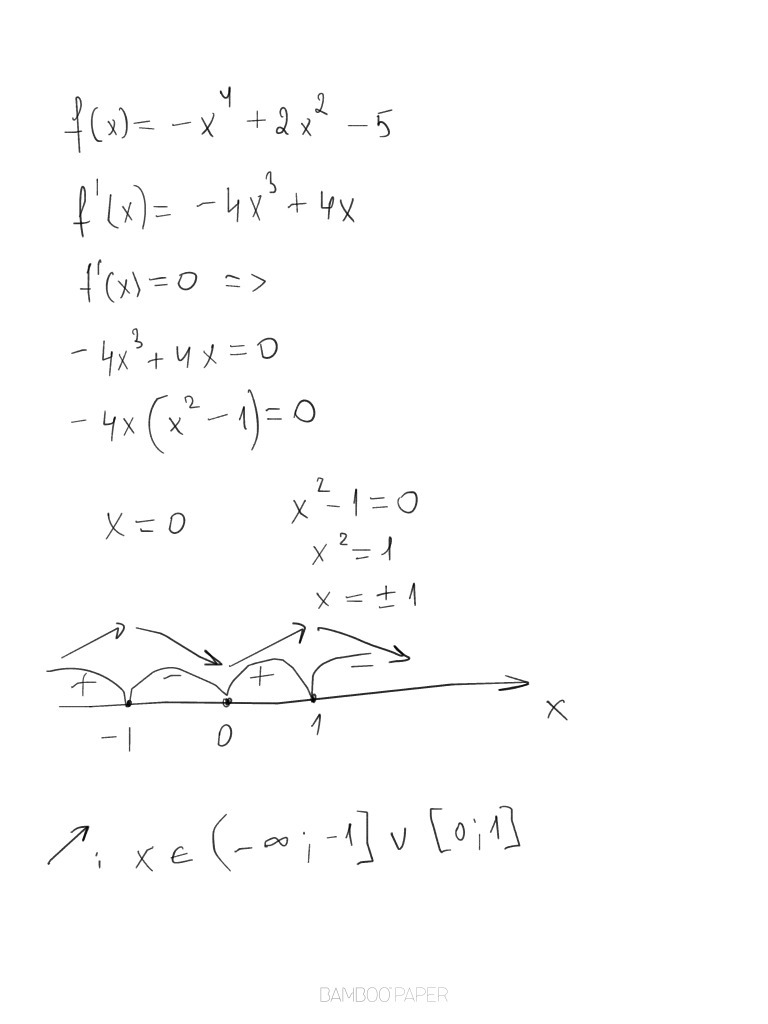 f(x) = -x⁴ + 2x² - 5
f'(x) = -4x³ + 4x
f'(x) = 0 =>
-4x³ + 4x = 0
-4x(x² - 1) = 0
x = 0
x² - 1 = 0
x² = 1
x = ± 1
+ - + -
-1 0 1 x
↗: x ∈ (-∞; -1] ∨ [0; 1]
BAMBOO PAPER